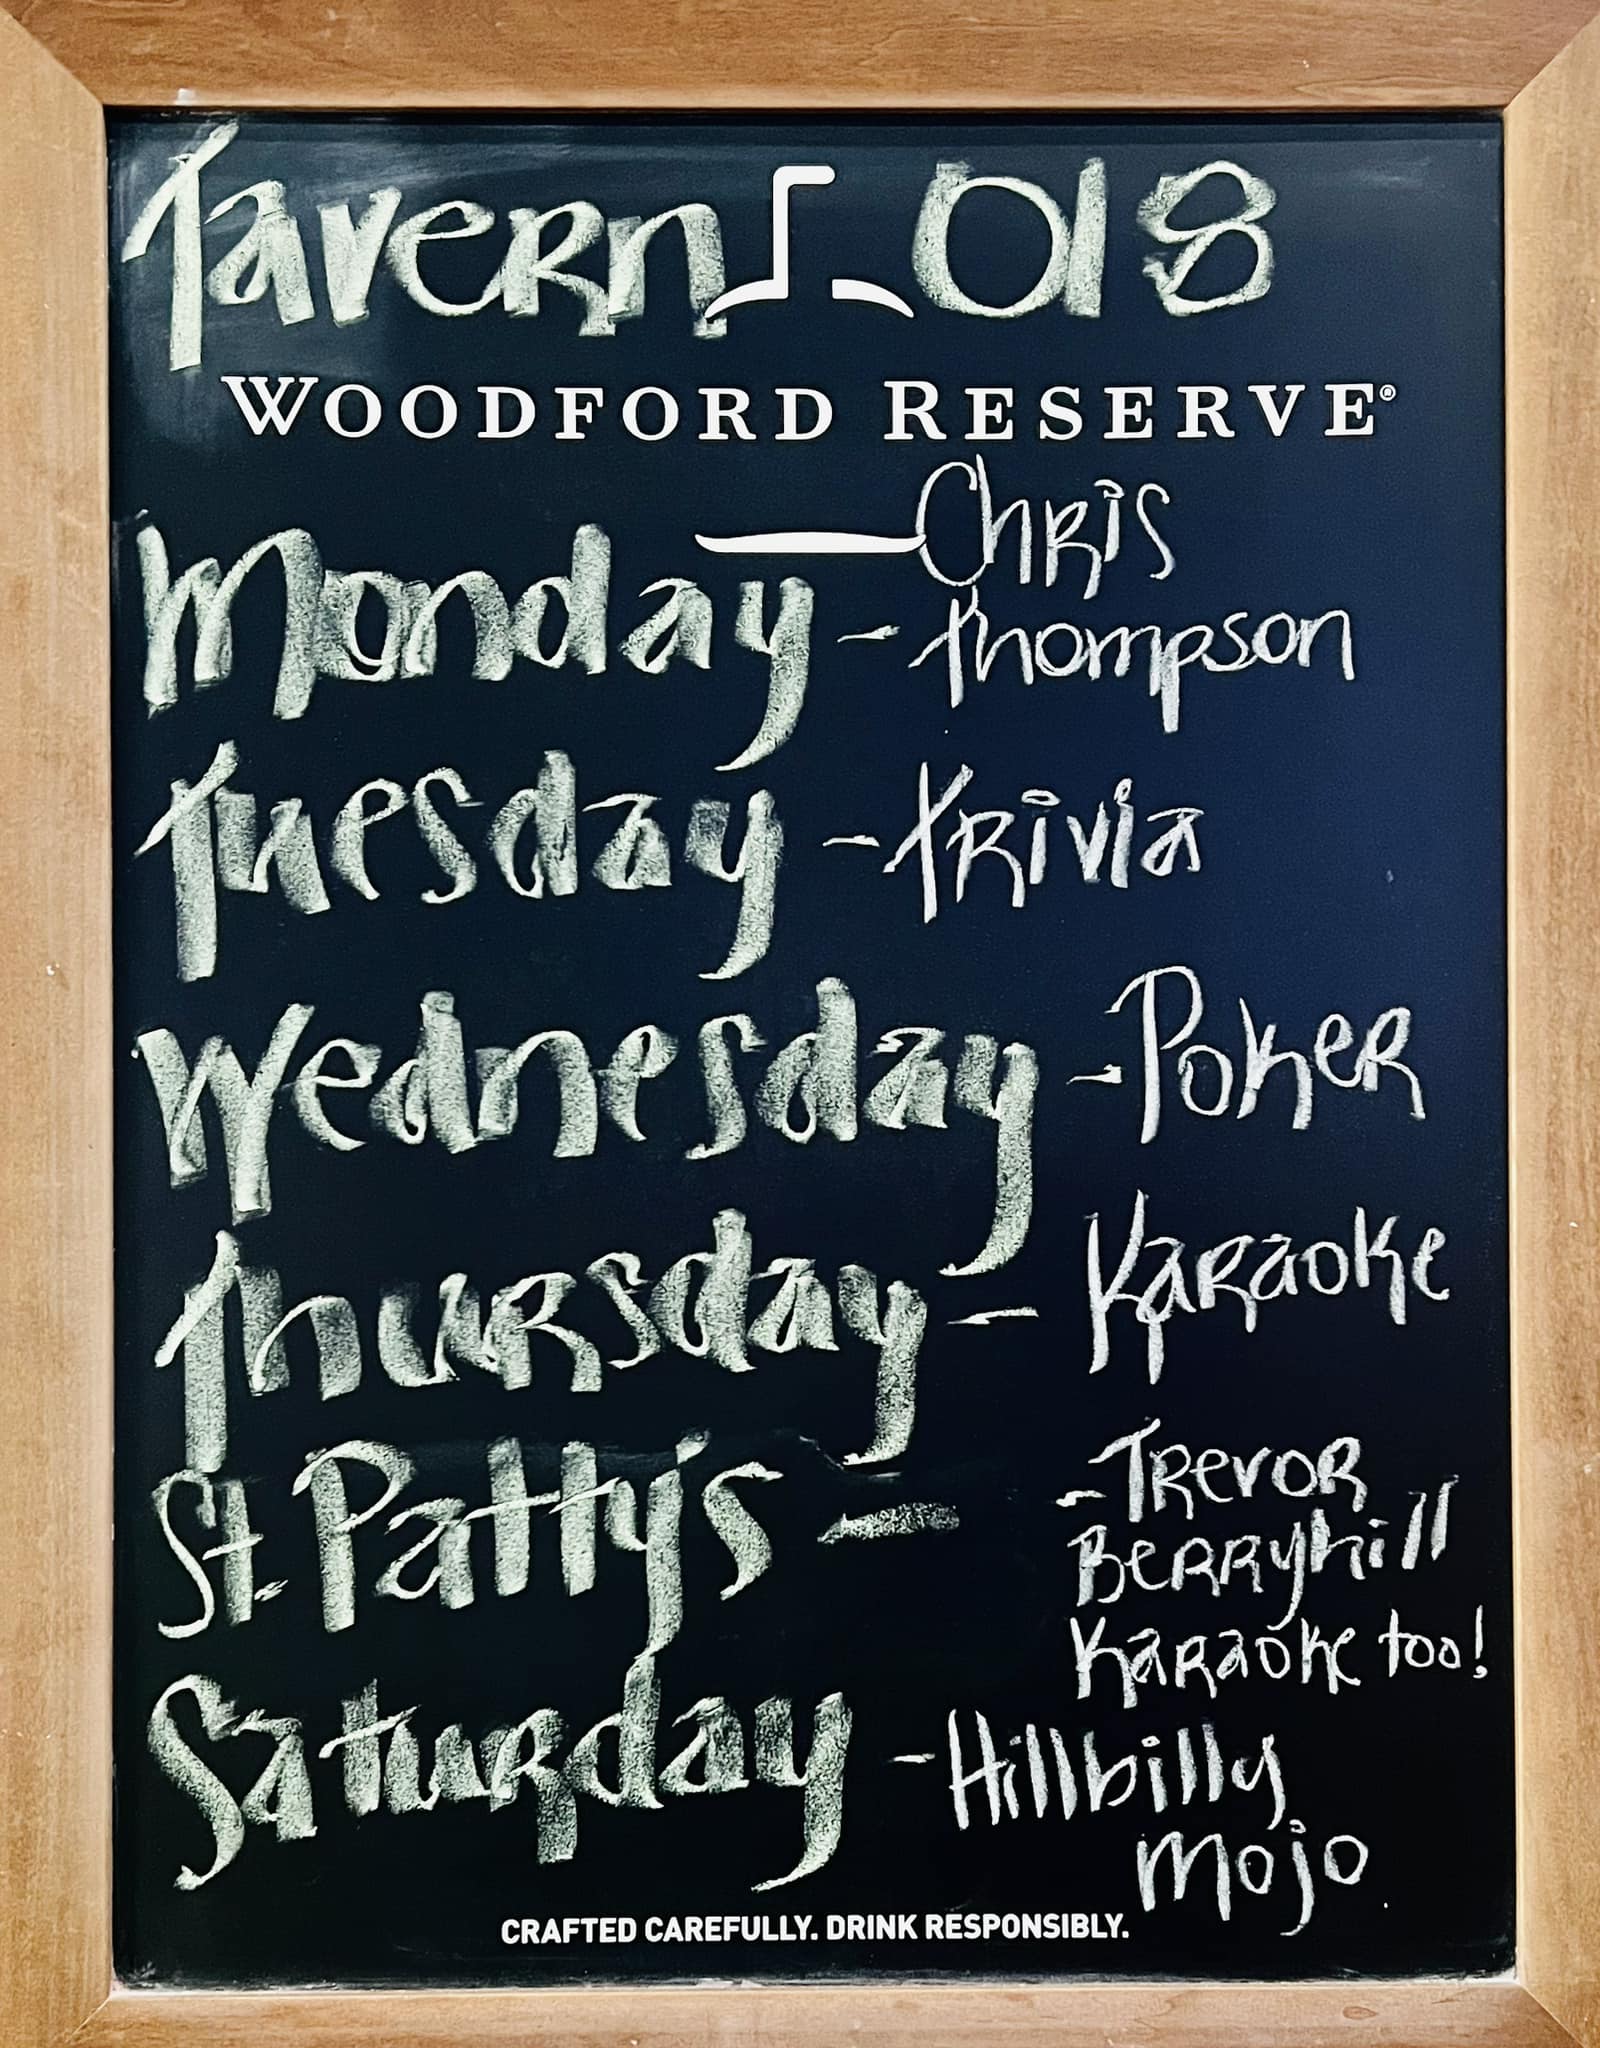 Tavern 018
WOODFORD RESERVE®
Monday - Chris
Thompson
Tuesday - Trivia
Wednesday - Poker
Thursday - Karaoke
St. Patty's - - Trevor
Berryhill
Karaoke too!
Saturday - Hillbilly
Mojo
CRAFTED CAREFULLY. DRINK RESPONSIBLY.